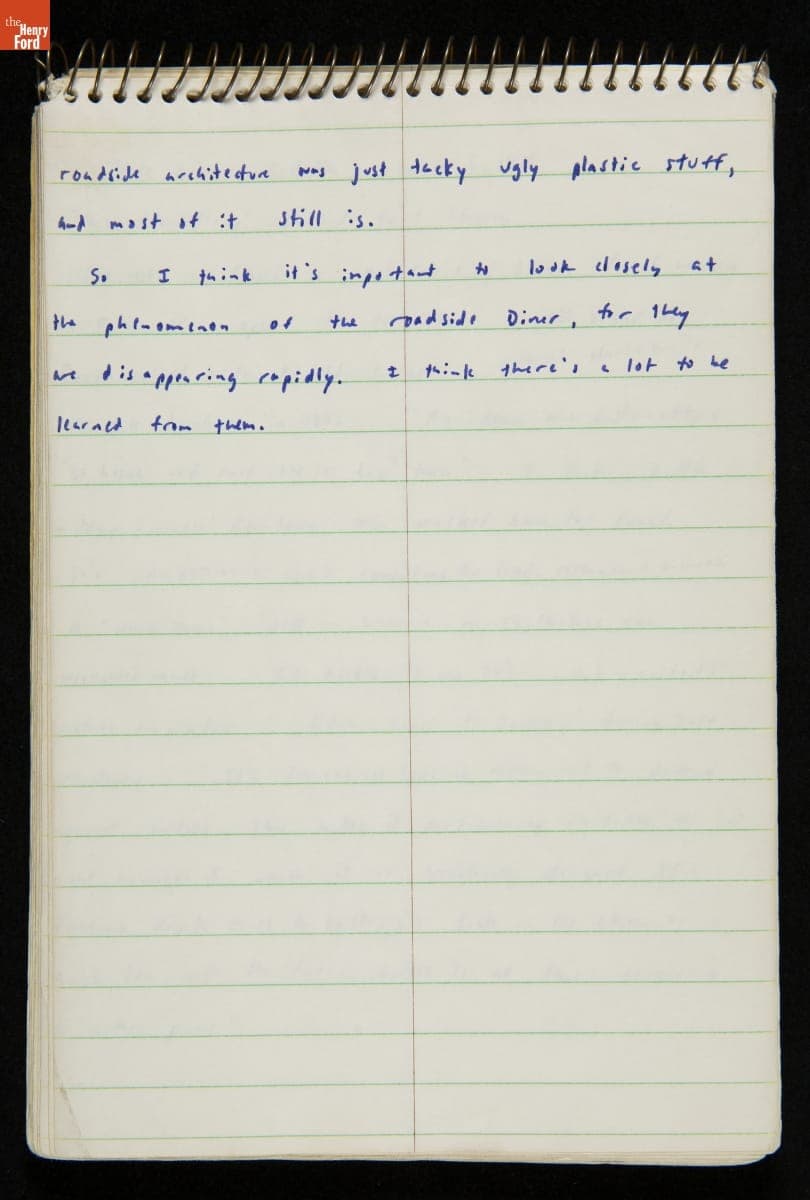 the
Henry
Ford
roadside architecture was just tacky ugly plastic stuff,
and most of it still is.
So I think it's important to look closely at
the phenomenon of the roadside Diner, for they
are disappearing rapidly. I think there's a lot to be
learned from them.